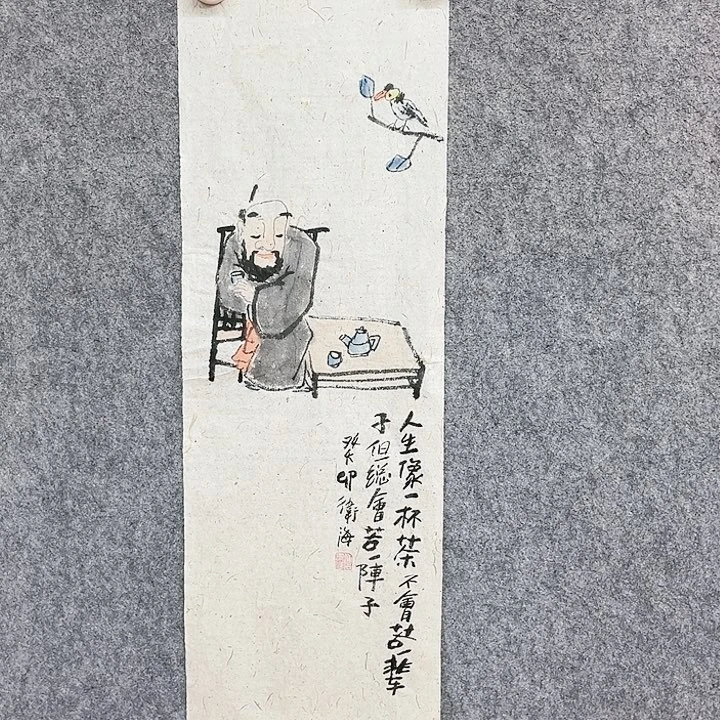 人生像一杯茶不會苦一輩
子但總會苦一陣子
癸卯衛海